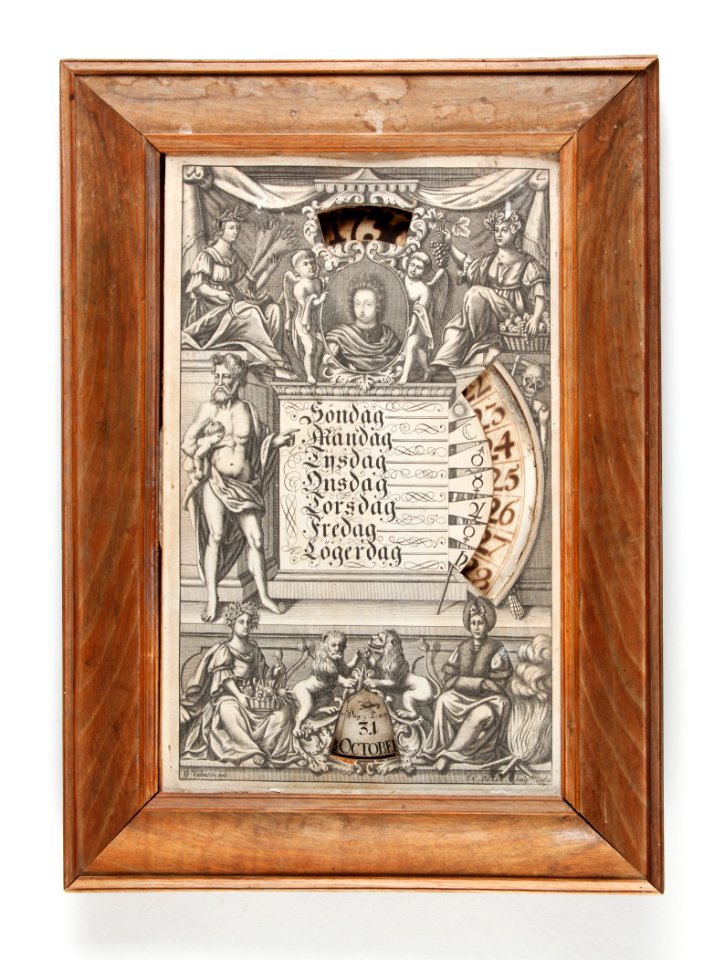 163
Söndag
Måndag
Tysdag
Onsdag
Torsdag
Fredag
Lögerdag
☉
☾
♂
☿
♃
♀
♄
23
24
25
26
27
28
Dag,
31
OCTOBER
del.
Sculp.